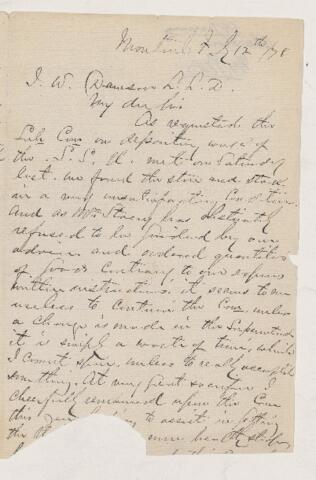 Montreal July 12th /78
J. W. Dawson L.L.D.
My dear Sir
As requested the
Sub Com. on depository work of
the S. S. U. met on Saturday
last. We found the store and stock
in a very unsatisfactory condition.
And as Mrs has distinctly
refused to be guided by our
advice and ordered quantities
of goods contrary to our express
written instructions it seems to me
useless to continue the Com. unless
a change is made in the Superintendent
it is simply a waste of time, which
I cannot spare, unless to really accomplish
something. At very great sacrifice I
cheerfully remained upon the Com
this year to assist in getting
the more healthy
this